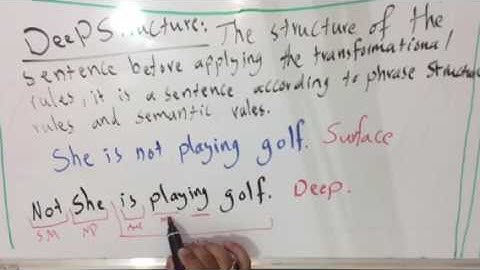 Deep Structure: The structure of the
sentence before applying the transformational
rules, it is a sentence according to phrase structure
rules and semantic rules.
She is not playing golf. Surface
Not She is playing golf. Deep.
SM NP Aux